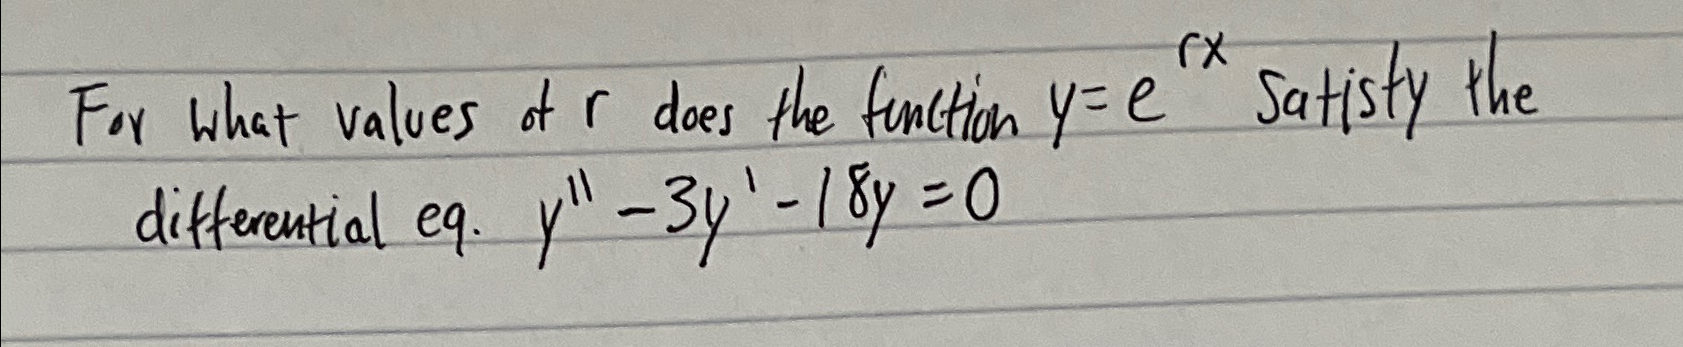 For what values of r does the function y = e^{rx} satisfy the
differential eq. y'' - 3y' - 18y = 0